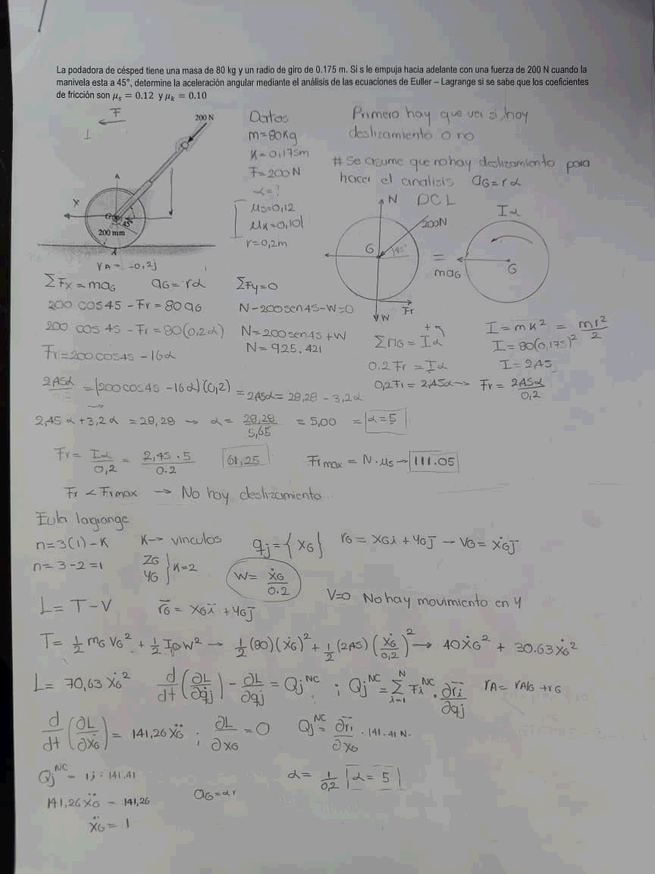 La podadora de césped tiene una masa de 80 kg y un radio de giro de 0.175 m. Si s le empuja hacia adelante con una fuerza de 200 N cuando la
manivela esta a 45°, determine la aceleración angular mediante el análisis de las ecuaciones de Euller – Lagrange si se sabe que los coeficientes
de fricción son μs = 0.12 y μk = 0.10
F
200 N
X
G
45°
200 mm
A
rA = -0,2j
Datos
m=80Kg
K=0,175m
F=200N
α=?
μs=0,12
μk=0,101
r=0,2m
Primero hay que ver si hay
deslizamiento o no
# Se asume que no hay deslizamiento para
hacer el analisis aG=rα
N DCL Iα
200N
G 45°
=
maG G
W Fr
ΣFx=maG aG=rα
200 cos45 - Fr = 80aG
200 cos 45 - Fr = 80(0,2α)
Fr=200cos45 - 16α
ΣFy=0
N-200sen45-W=0
N=200sen45+W
N=925,421
ΣMG = Iα
0.2Fr = Iα
0,2Fr = 2,45α → Fr = 2,45α/0,2
I=mK² = mr²/2
I=80(0,175)²
I=2,45
2,45α = (200cos45 - 16α)(0,2) = 2,45α = 28,28 - 3,2α
2,45α+3,2α = 28,28 → α = 28,28/5,65 = 5,00 = α=5
Fr = Iα/0,2 = 2,45 · 5/0.2 61,25 Frmax = N·μs → 111.05
Fr < Frmax → No hay deslizamiento
Euler lagrange
n=3(1)-K K → vinculos
n=3-2=1 ZG YG } K=2
qj={XG} rG = XGi + YGj → VG = ẋGj
W= ẋG/0.2
L=T-V r̄G = XGi + YGj V=0 No hay movimiento en Y
T= 1/2 mG VG² + 1/2 IP W² → 1/2 (80)(ẋG)² + 1/2 (2,45)(ẋG/0,2)² → 40ẋG² + 30.63ẋG²
L= 70,63 ẋG² d/dt (∂L/∂q̇j) - ∂L/∂qj = Qj^NC ; Qj^NC = Σ Fi^NC · ∂r̄i/∂qj rA = rA/G + rG
d/dt (∂L/∂ẋG) = 141,26ẍG ; ∂L/∂XG = 0 Qj^NC = ∂r̄i/∂XG · 141.41 N.
Qj^NC = 1j · 141,41
α= 1/0,2 α= 5
141,26ẍG = 141,26
ẍG = 1